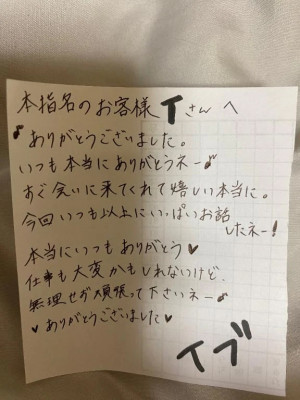 本指名のお客様Tさんへ
♪ありがとうございました。
いつも本当にありがとうネー♪
すぐ会いに来てくれて嬉しい本当に。
今回いつも以上にいっぱいお話
したネー!
本当にいつもありがとう♥
仕事も大変かもしれないけど、
無理せず頑張って下さいネー♪
♥ありがとうございました♥
イブ